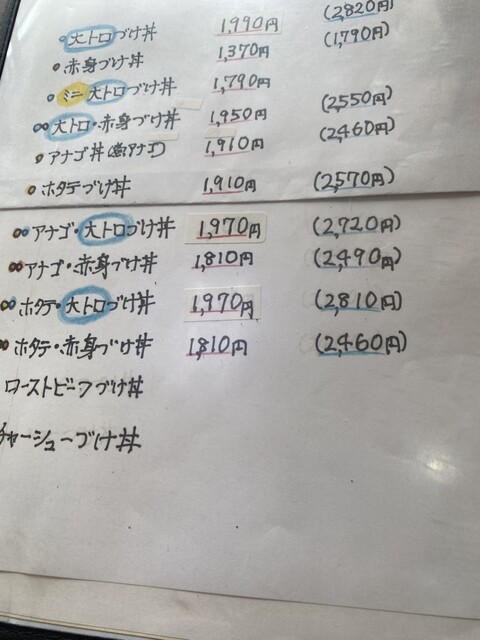 大トロづけ丼 1,990円 (2,820円)
赤身づけ丼 1,370円 (1,790円)
ミニ大トロづけ丼 1,790円
大トロ・赤身づけ丼 1,950円 (2,550円)
アナゴ丼 1,910円 (2,460円)
ホタテづけ丼 1,910円 (2,570円)
アナゴ・大トロづけ丼 1,970円 (2,720円)
アナゴ・赤身づけ丼 1,810円 (2,490円)
ホタテ・大トロづけ丼 1,970円 (2,810円)
ホタテ・赤身づけ丼 1,810円 (2,460円)
ローストビーフづけ丼
チャーシューづけ丼